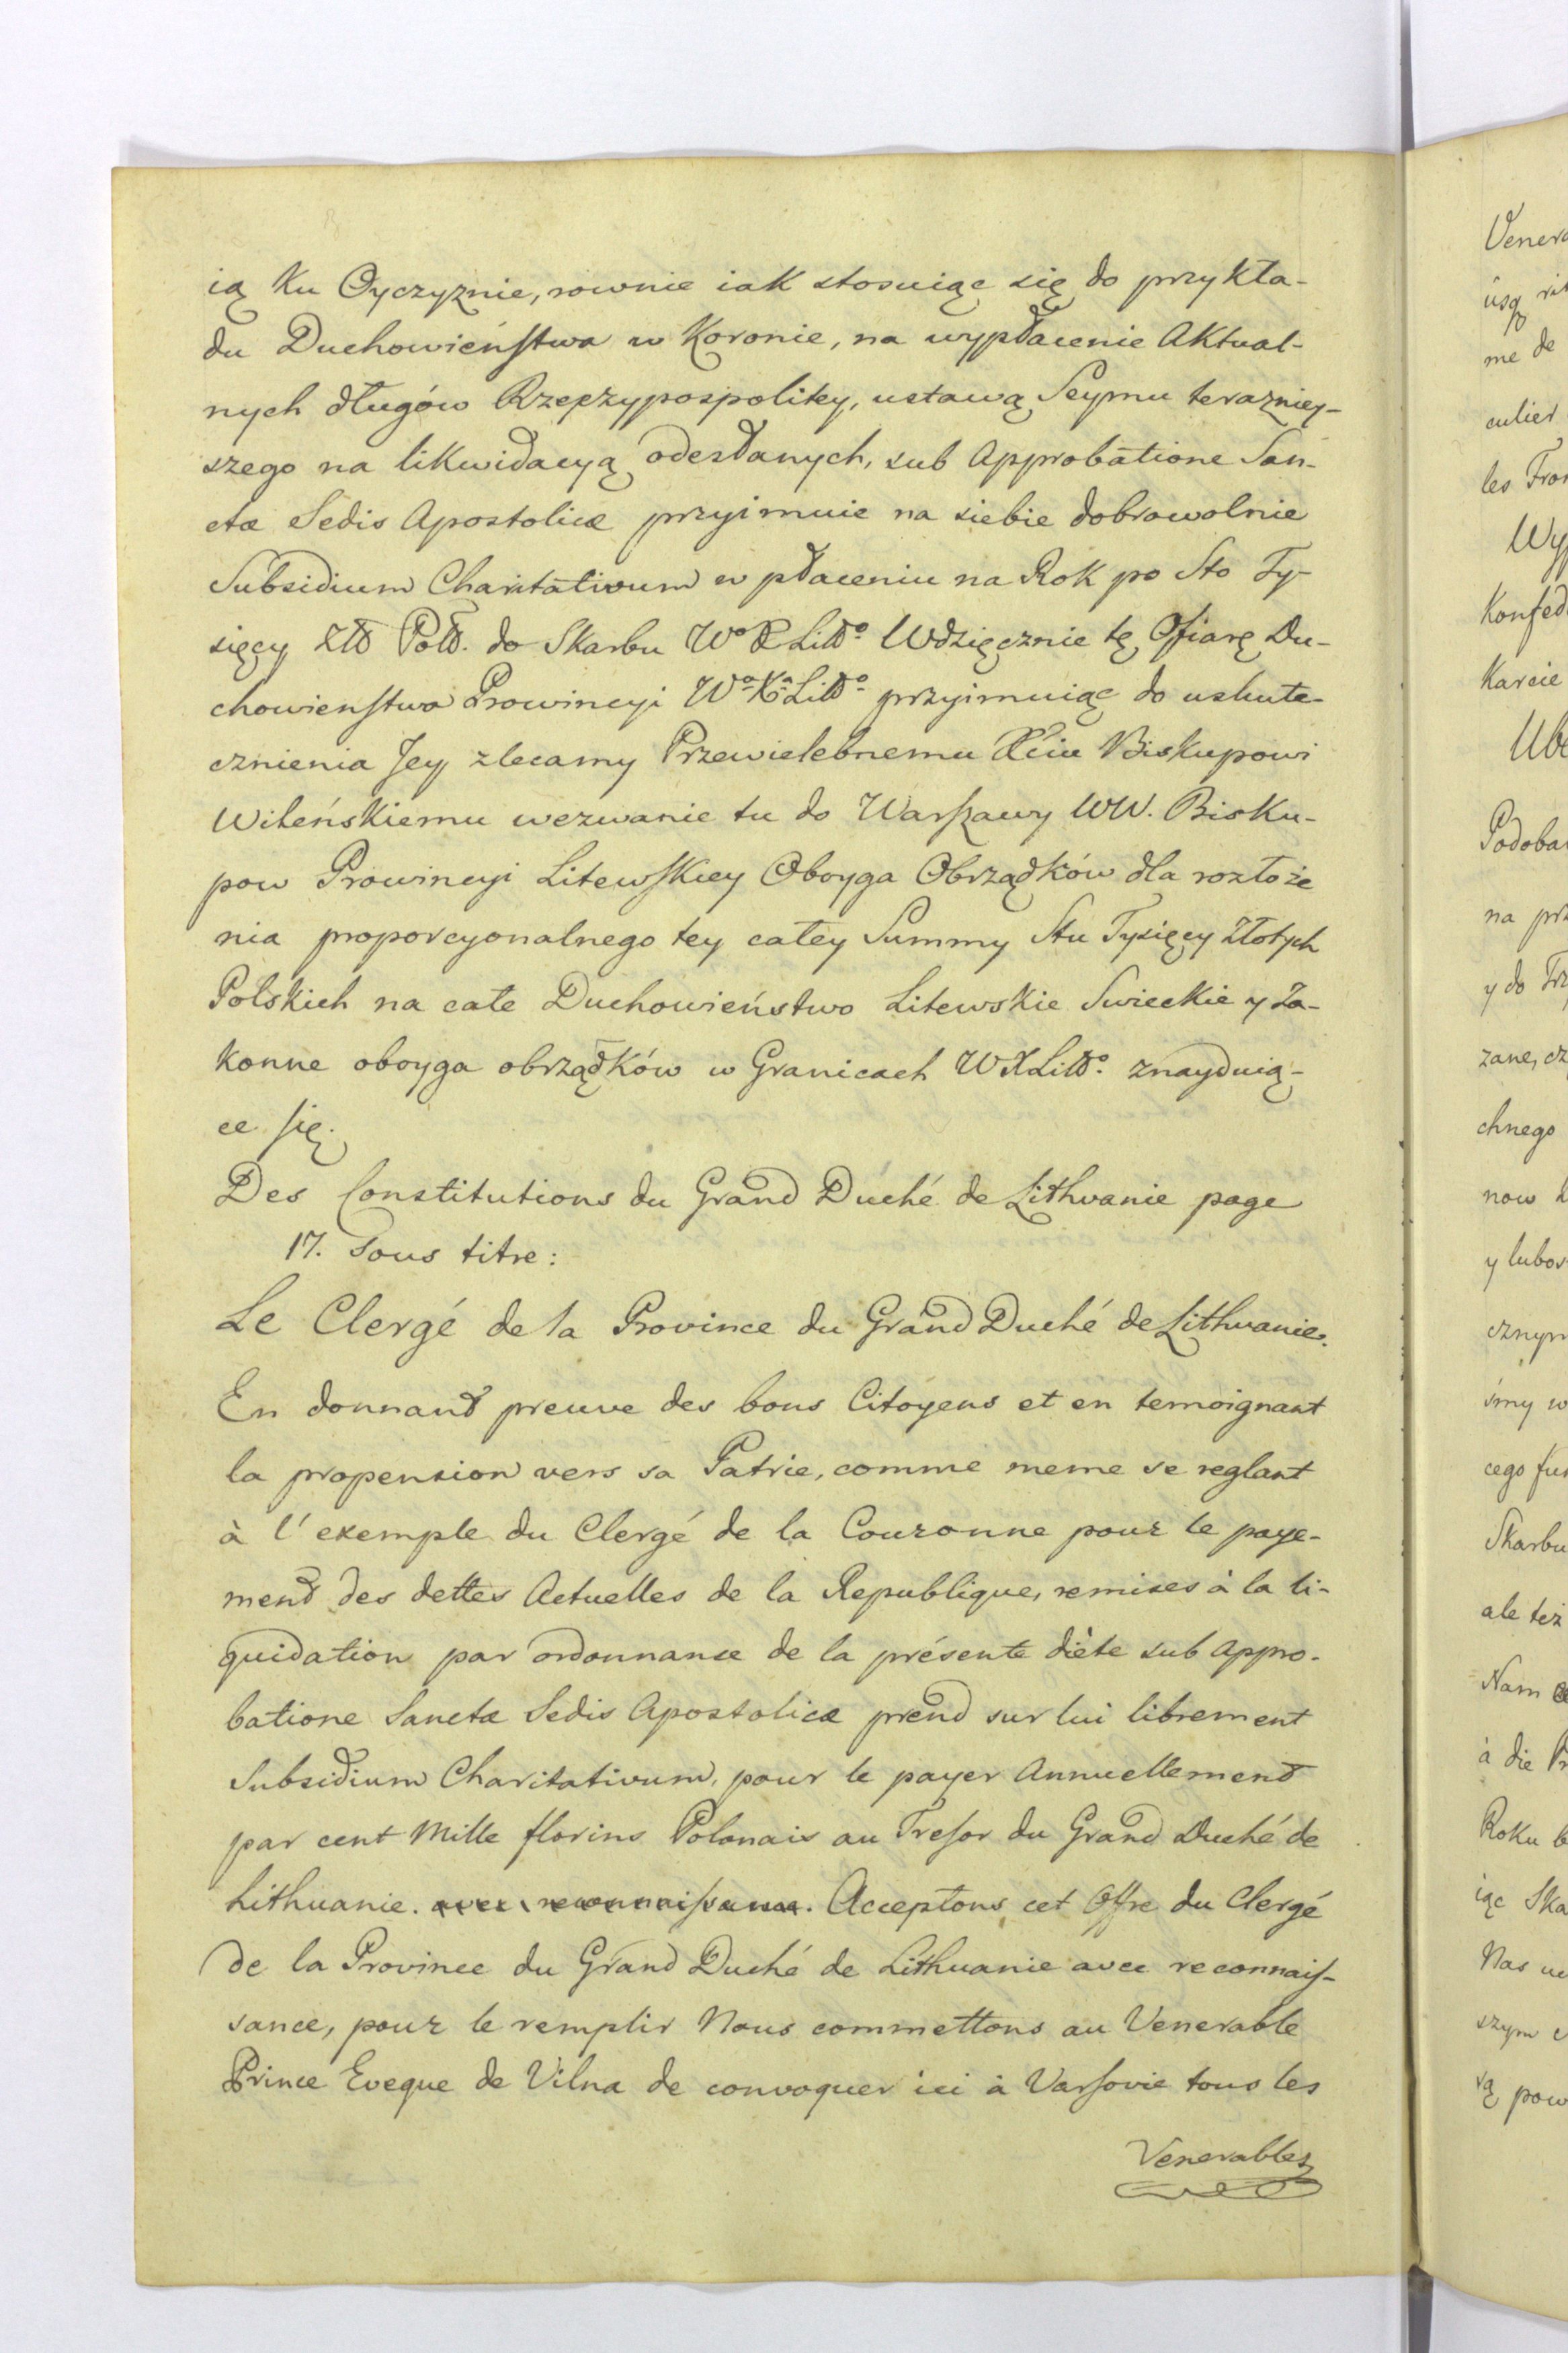 ią Ku Oyczyznie, rownie iak stosuiąc się do przykła-
du Duchowieństwa w Koronie, na wypłacenie Aktual-
nych długów Rzeczypospolitey, ustawą Seymu teraźniey-
szego na likwidacyą odesłanych, sub Approbatione San-
ctæ Sedis Apostolicæ przyimuie na siebie dobrowolnie
Subsidium Charitativum w płaceniu na Rok po Sto Ty-
sięcy Złł Poll. do Skarbu Wo X Litto. Wdzięcznie tę Ofiarę Du-
chowienstwa Prowincyi Wo Xa Litto. przyimuiąc do uskute-
cznienia Jey zlecamy Przewielebnemu Xciu Biskupowi
Wileńskiemu wezwanie tu do Warszawy WW. Bisku-
pow Prowincyi Litewskiey Oboyga Obrządków dla rozłoże
nia proporcyonalnego tey całey Summy Stu Tysięcy Złotych
Polskich na całe Duchowieństwo Litewskie Swieckie y Za-
konne oboyga obrządków w Granicach WXLitto. znayduią-
ce się.
Des Constitutions du Grand Duché de Lithuanie page
17. Sous titre:
Le Clergé de la Province du Grand Duché de Lithuanie.
En donnant preuve des bons Citoyens et en temoignant
la propension vers sa Patrie, comme meme se reglant
à l'exemple du Clergé de la Couronne pour le paye-
ment des dettes Actuelles de la Republique, remises à la li-
quidation par ordonnance de la présente diète sub appro-
batione Sanctæ Sedis Apostolicæ prend sur lui librement
Subsidium Charitativum, pour le payer Annuellement
par cent Mille florins Polonais au Tresor du Grand Duché de
Lithuanie. avec reconnaissance. Acceptons cet Offre du Clergé
de la Province du Grand Duché de Lithuanie avec reconnais-
sance, pour le remplir Nous commettons au Venerable
Prince Eveque de Vilna de convoquer ici à Varsovie tous les
Venerables
Venera
me de
culier
Konfed
Karcie
Podoba
y do
zane, cz
chnego
now
y lubo
cznym
śmy w
cego fu
Skarbu
ale też
Nam
à die
Roku
iąc Ska
Nas
szym
rą pow